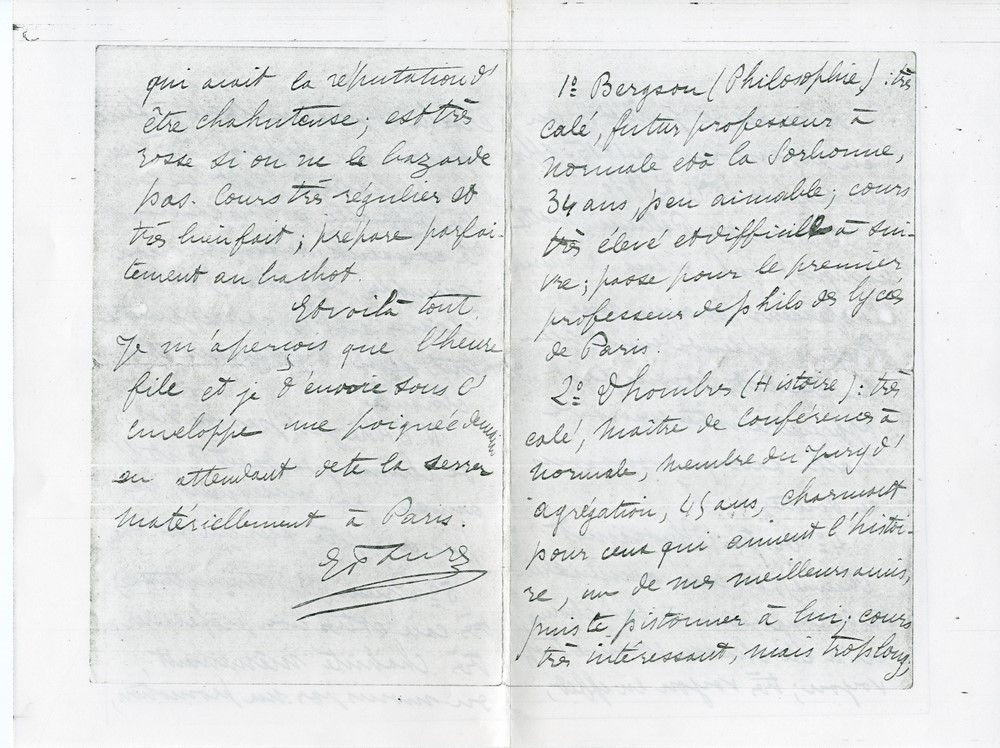 qui avait la réputation d'
être chahuteuse ; est très
rosse si on ne le bazarde
pas. Cours très régulier et
très bien fait ; prépare parfai-
tement au bachot.
Et voilà tout.
Je m'aperçois que l'heure
file et je t'envoie sous l'
enveloppe une poignée de main
en attendant de te la serrer
matériellement à Paris.
E Faure
1º Bergson (Philosophie) : très
calé, futur professeur à
Normale et à la Sorbonne,
34 ans, peu aimable ; cours
très élevé et difficile à sui-
vre ; passe pour le premier
professeur de philo des lycées
de Paris.
2º Dhombres (Histoire) : très
calé, Maître de Conférences à
Normale, membre du Jury d'
agrégation, 45 ans, charmant
pour ceux qui aiment l'histoi-
re, un de mes meilleurs amis,
puis te pistonner à lui ; cours
très intéressant, mais trop long ;